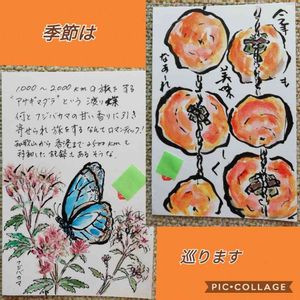 季節は
1000〜2000kmの旅をする
"アサギマダラ"という渡り蝶
何とフジバカマの甘い香りに引き
寄せられ旅をするなんてロマンティック!
和歌山から香港まで2500kmも
移動した記録もあるそうな
フジバカマ
今年も
美味しく
なあーれ
巡ります
PIC•COLLAGE